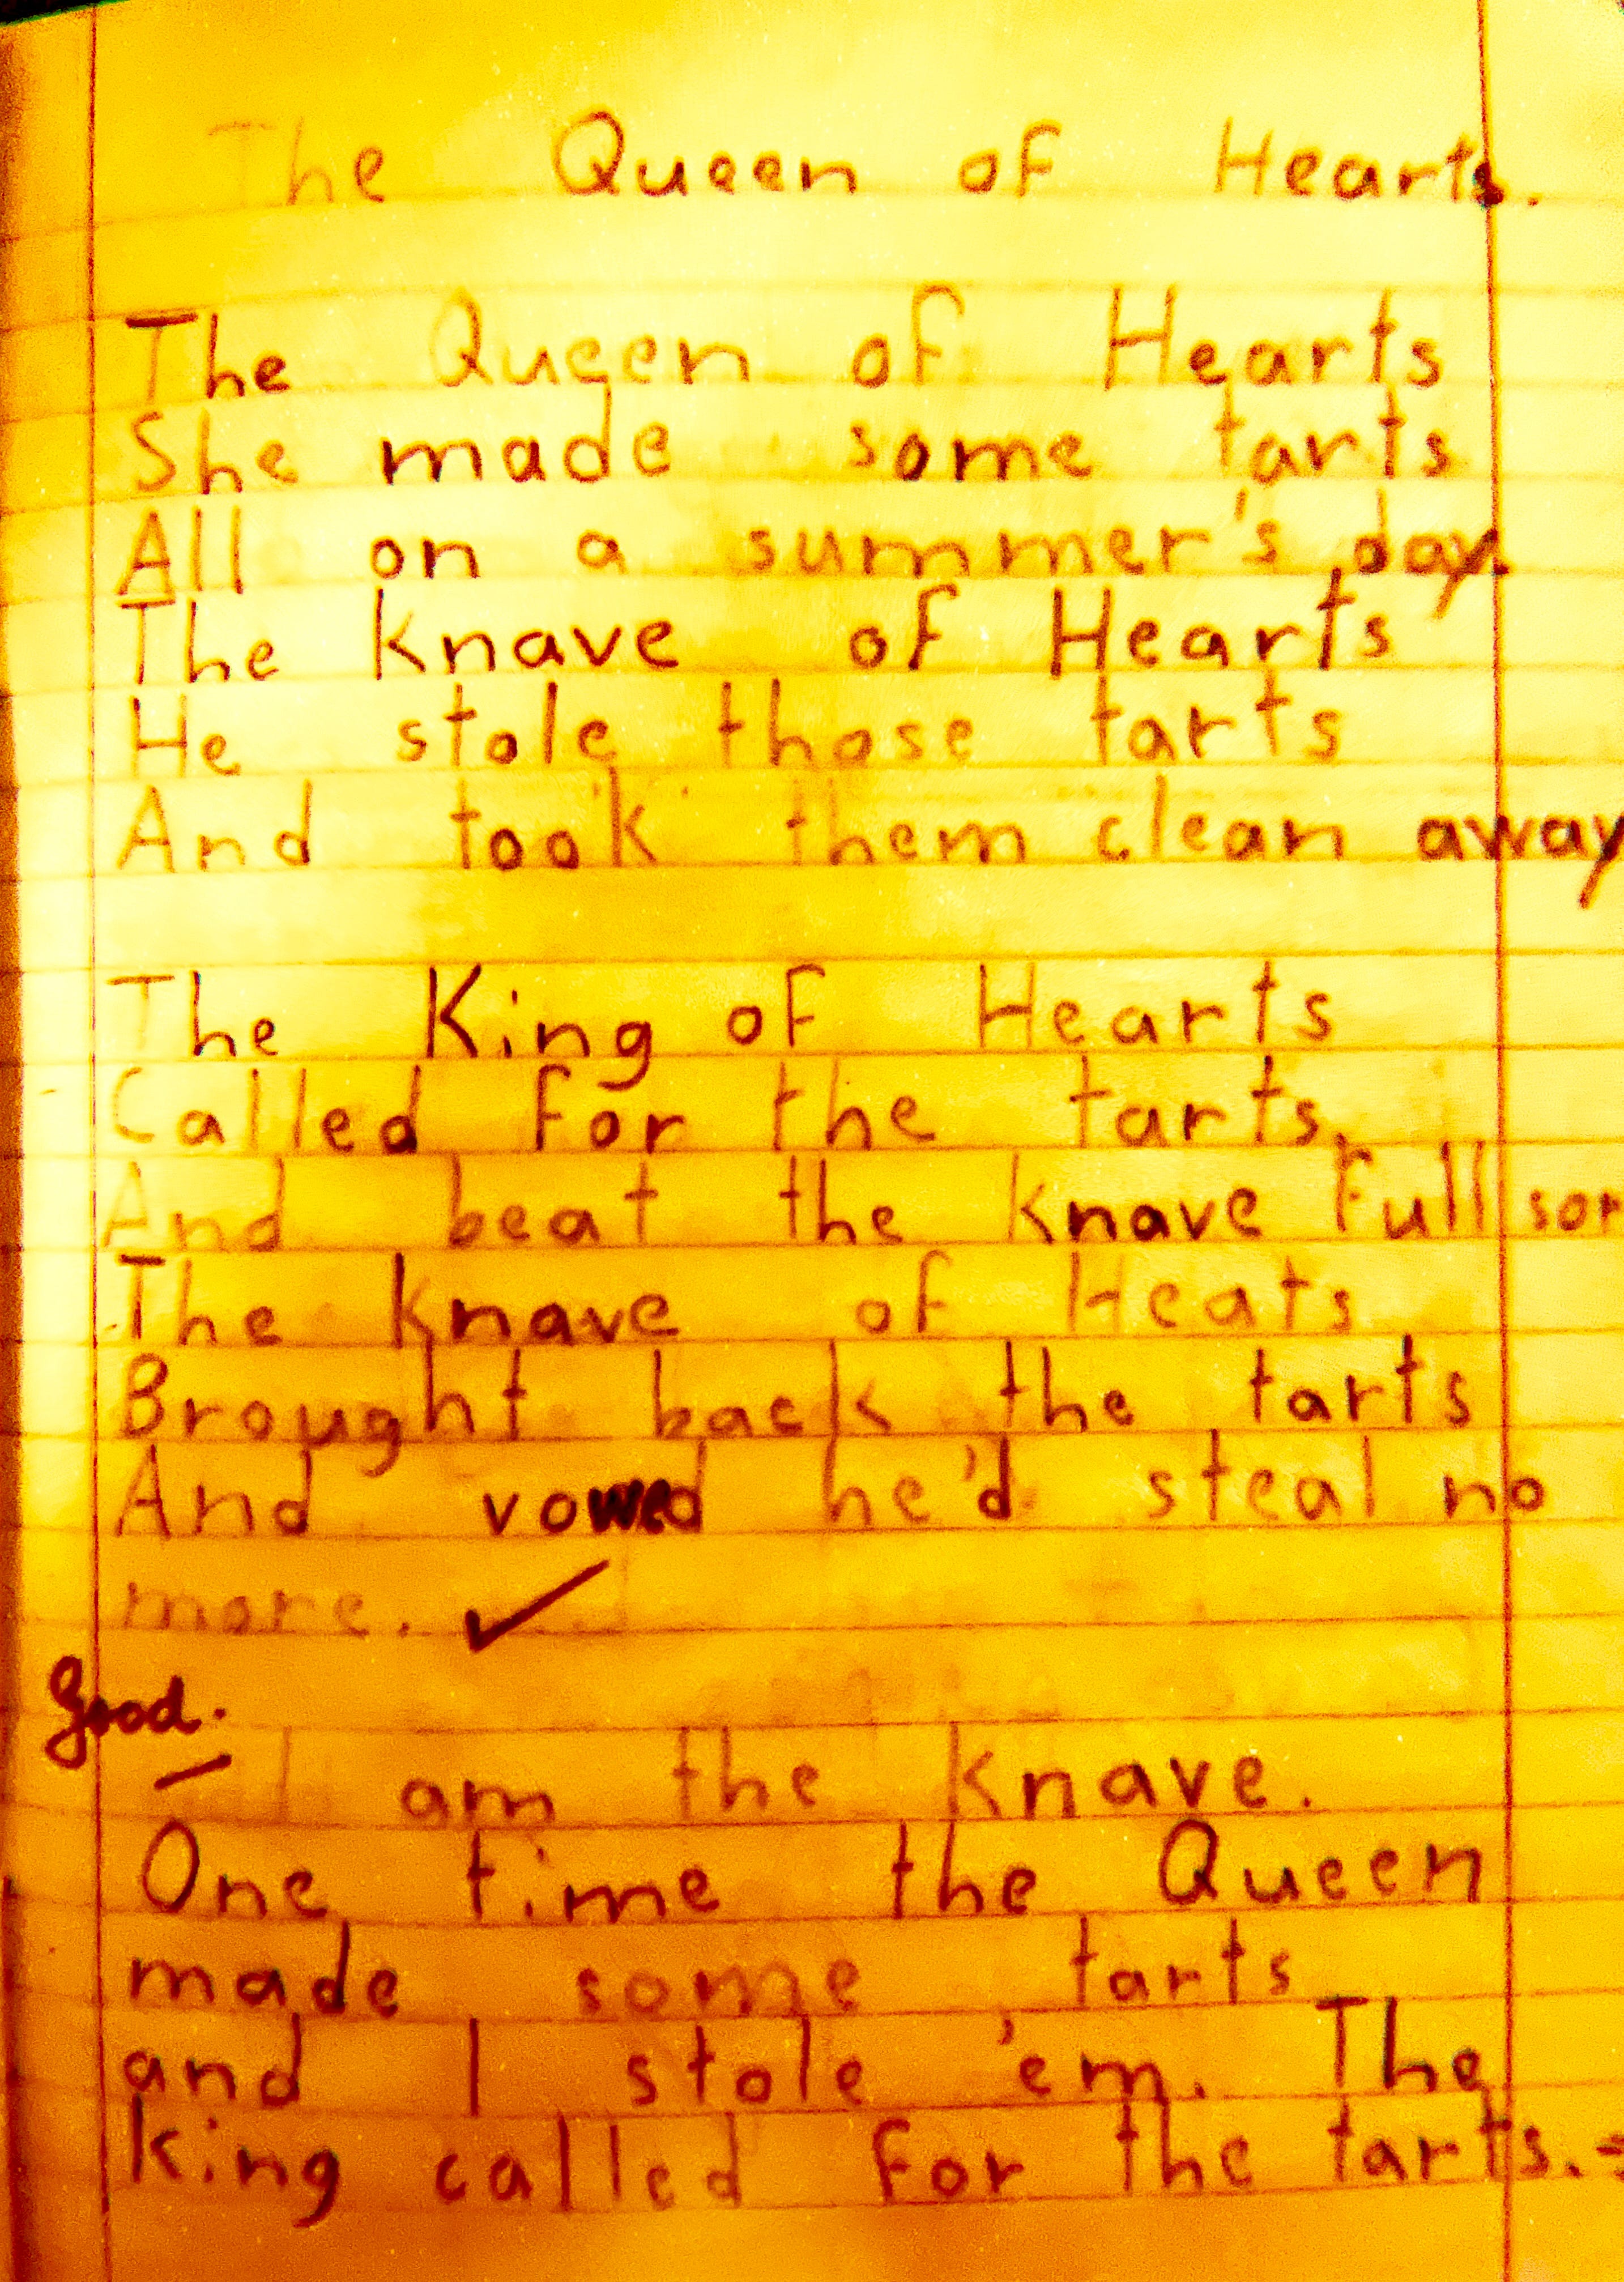 The Queen of Hearts.
The Queen of Hearts
She made some tarts
All on a summer's day.
The Knave of Hearts
He stole those tarts
And took them clean away
The King of Hearts
Called for the tarts,
And beat the Knave full sor
The Knave of Heats
Brought back the tarts
And vowed he'd steal no
more. ✓
Good.
I am the Knave.
One time the Queen
made some tarts
and I stole 'em. The
King called for the tarts.